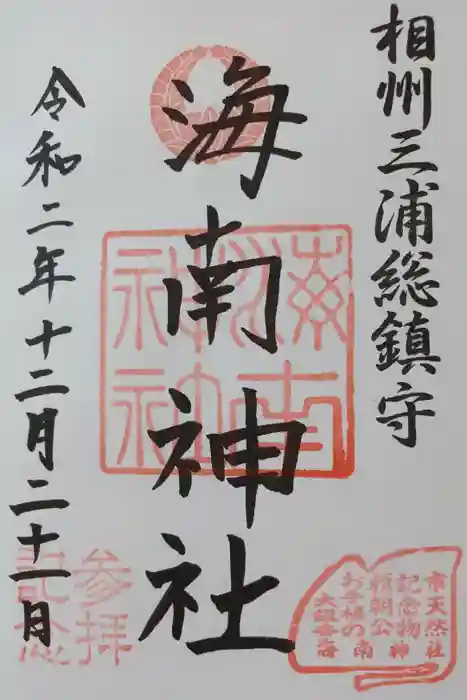 相州三浦総鎮守
海南神社
令和二年十二月二十一日
海南神社
参拝
記念
市天然
記念物
頼朝公
お手植の
大銀杏
海南神社